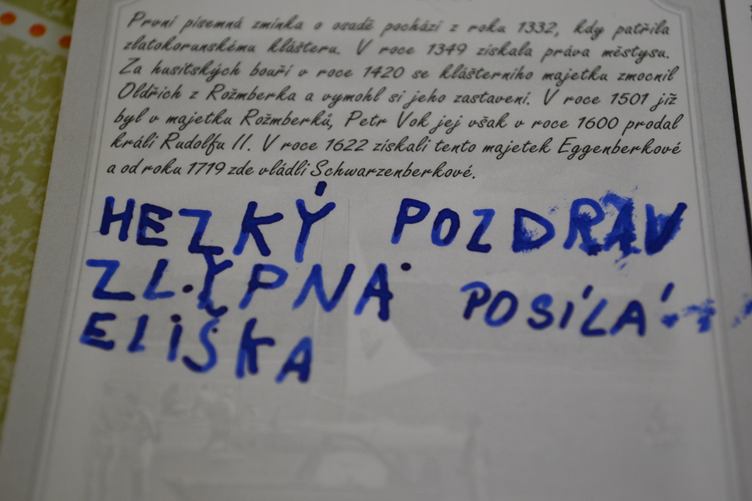 První písemná zmínka o osadě pochází z roku 1332, kdy patřila
zlatokorunskému klášteru. V roce 1349 získala práva městysu.
Za husitských bouří v roce 1420 se klášterního majetku zmocnil
Oldřich z Rožmberka a vymohl si jeho zastavení. V roce 1501 již
byl v majetku Rožmberků, Petr Vok jej však v roce 1600 prodal
králi Rudolfu II. V roce 1622 získali tento majetek Eggenberkové
a od roku 1719 zde vládli Schwarzenberkové.
HEZKÝ POZDRAV
Z LYPNA POSÍLÁ
ELIŠKA